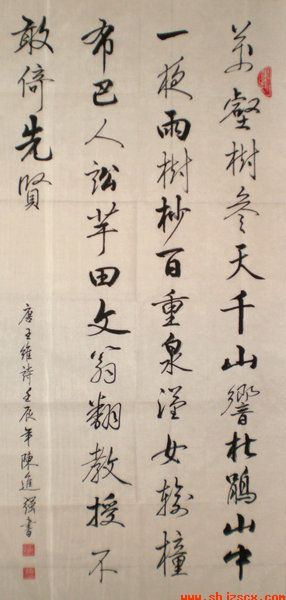 萬壑樹參天千山響杜鵑山中
一夜雨樹杪百重泉漢女輸橦
布巴人訟芋田文翁翻教授不
敢倚先賢
唐王維詩壬辰年陳進强書